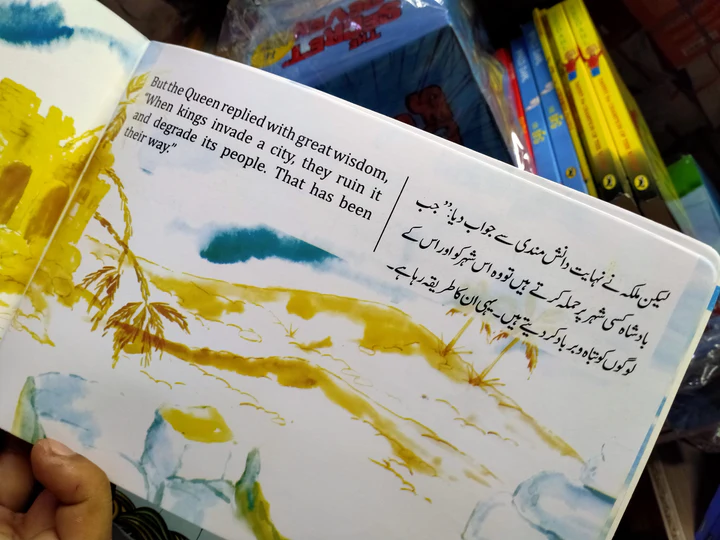 But the Queen replied with great wisdom,
"When kings invade a city, they ruin it
and degrade its people. That has been
their way."
لیکن ملکہ نے نہایت دانش مندی سے جواب دیا: ”جب
بادشاہ کسی شہر پر حملہ کرتے ہیں تو وہ اس شہر کو اور اس کے
لوگوں کو تباہ و برباد کر دیتے ہیں۔ یہی ان کا طریقہ رہا ہے۔
THE
SECRET
SEVEN